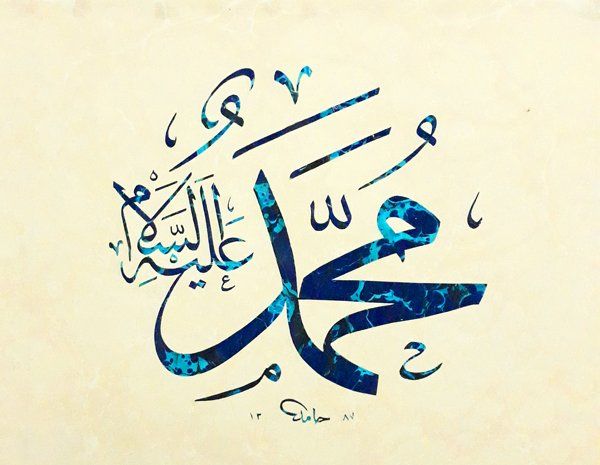 مُحَمَّدٌ
عَلَيْهِ السَّلَامُ
حامد ١٣٨٧